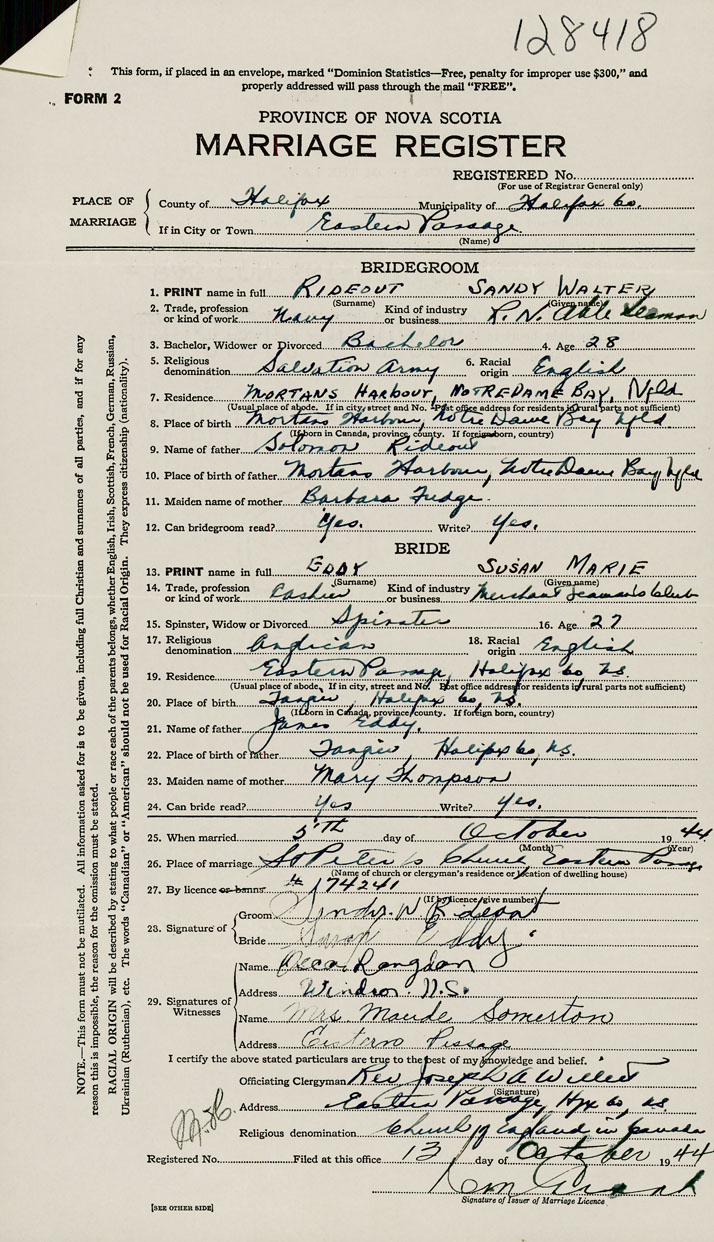 128418
This form, if placed in an envelope, marked "Dominion Statistics—Free, penalty for improper use $300," and
properly addressed will pass through the mail "FREE".
FORM 2
PROVINCE OF NOVA SCOTIA
MARRIAGE REGISTER
REGISTERED No.
(For use of Registrar General only)
PLACE OF MARRIAGE
County of Halifax Municipality of Halifax Co.
If in City or Town Eastern Passage
(Name)
BRIDEGROOM
1. PRINT name in full RIDEOUT SANDY WALTER
(Surname) (Given name)
2. Trade, profession or kind of work Navy Kind of industry or business R.N. Able Seaman
3. Bachelor, Widower or Divorced Bachelor 4. Age 28
5. Religious denomination Salvation Army 6. Racial origin English
7. Residence MORTANS HARBOUR, NOTREDAME BAY, Nfld
(Usual place of abode. If in city, street and No. Post office address for residents in rural parts not sufficient)
8. Place of birth Mortans Harbour, Notre Dame Bay Nfld
(If born in Canada, province, county. If foreign born, country)
9. Name of father Solomon Rideout
10. Place of birth of father Mortans Harbour, Notre Dame Bay Nfld
11. Maiden name of mother Barbara Fudge.
12. Can bridegroom read? Yes. Write? Yes.
BRIDE
13. PRINT name in full EDDY SUSAN MARIE
(Surname) (Given name)
14. Trade, profession or kind of work Cashier Kind of industry or business Merchant Seaman's Club
15. Spinster, Widow or Divorced Spinster 16. Age 27
17. Religious denomination Anglican 18. Racial origin English
19. Residence Eastern Passage, Halifax Co, N.S.
(Usual place of abode. If in city, street and No. Post office address for residents in rural parts not sufficient)
20. Place of birth Tangier, Halifax Co, N.S.
(If born in Canada, province, county. If foreign born, country)
21. Name of father James Eddy.
22. Place of birth of father Tangier, Halifax Co, N.S.
23. Maiden name of mother Mary Thompson
24. Can bride read? Yes Write? Yes.
25. When married 5th day of October 1944
(Month) (Year)
26. Place of marriage St Peter's Church, Eastern Passage
(Name of church or clergyman's residence or location of dwelling house)
27. By licence or banns # 174241
(If by licence, give number)
28. Signature of
Groom Sandy. W Rideout
Bride Susan Eddy
29. Signatures of Witnesses
Name Oscar Langdon
Address Windsor. N.S.
Name Mrs. Maude Somerton
Address Eastern Passage
I certify the above stated particulars are true to the best of my knowledge and belief.
Officiating Clergyman Rev Joseph A Willett
(Signature)
Address Eastern Passage, Hfx Co N.S.
Religious denomination Church of England in Canada
Registered No. Filed at this office 13 day of October 1944
Signature of Issuer of Marriage Licence
[SEE OTHER SIDE]
NOTE.—This form must not be mutilated. All information asked for is to be given, including full Christian and surnames of all parties, and if for any
reason this is impossible, the reason for the omission must be stated.
RACIAL ORIGIN will be described by stating to what people or race each of the parents belongs, whether English, Irish, Scottish, French, German, Russian,
Ukrainian (Ruthenian), etc. The words "Canadian" or "American" should not be used for Racial Origin. They express citizenship (nationality).